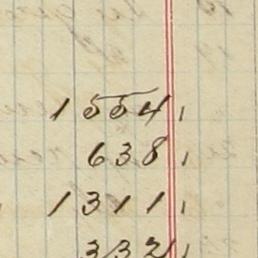 1554,
638,
1311,
332,